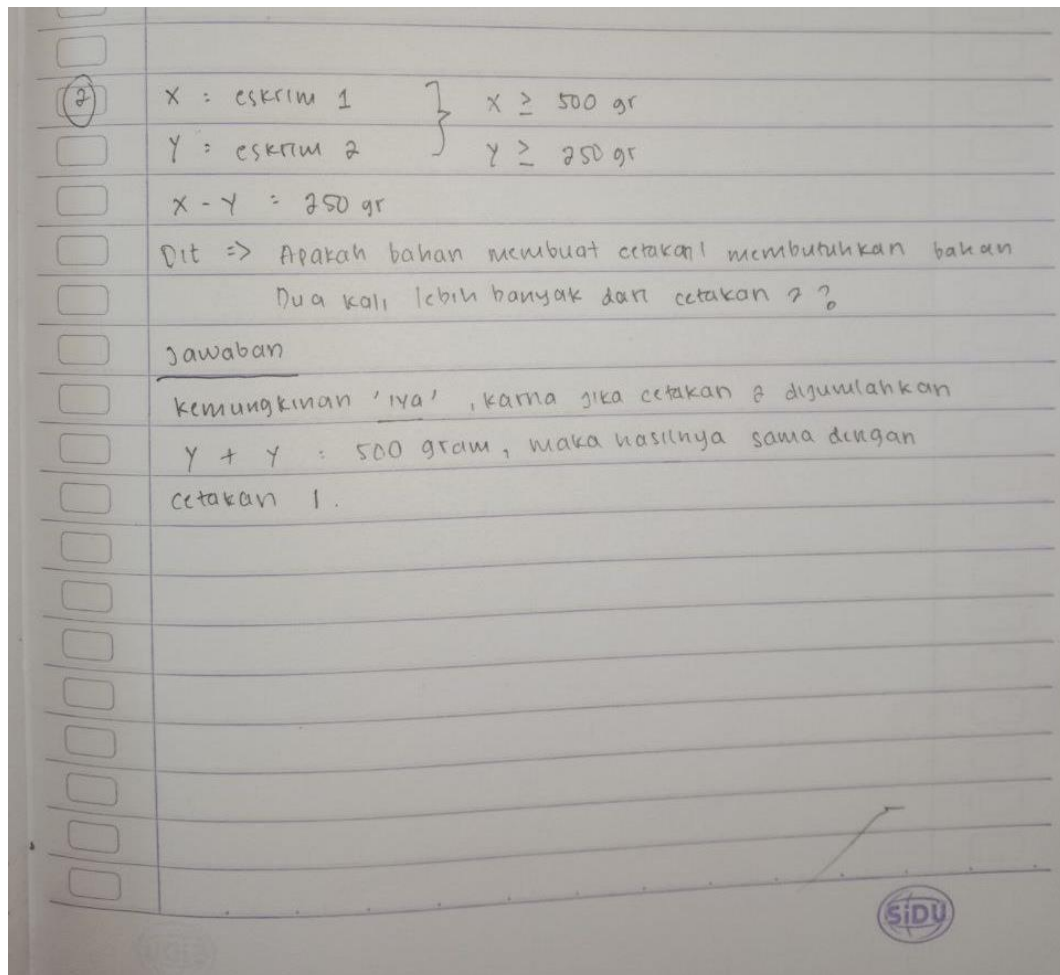 2 X : eskrim 1 } X ≥ 500 gr
Y : eskrim 2 Y ≥ 250 gr
X - Y = 250 gr
Dit => Apakah bahan membuat cetakan 1 membutuhkan bahan
Dua kali lebih banyak dari cetakan 2 ?
Jawaban
Kemungkinan 'iya', karna jika cetakan 2 dijumlahkan
Y + Y = 500 gram, maka hasilnya sama dengan
cetakan 1.
SiDU